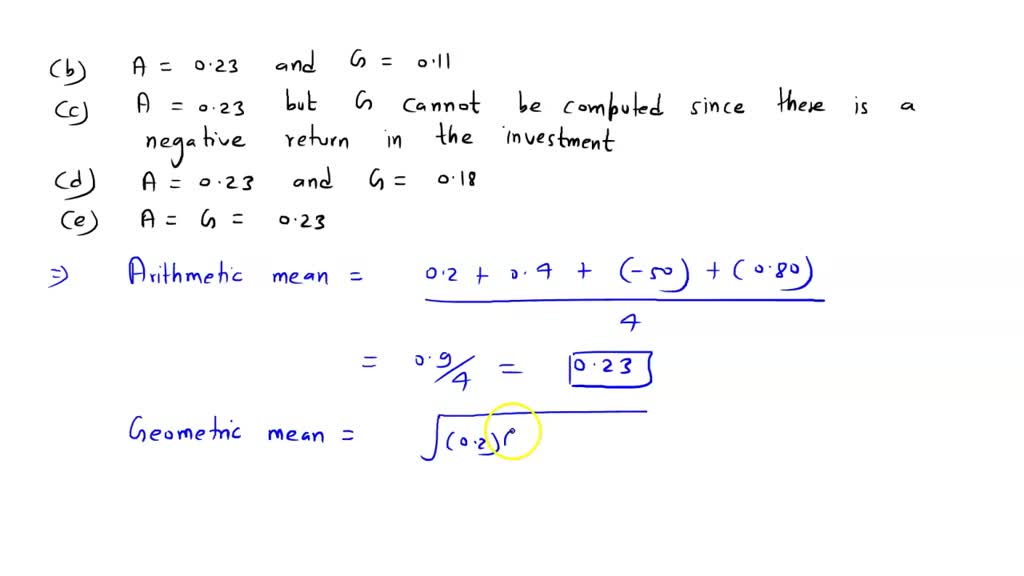 (b) A = 0.23 and G = 0.11
(c) A = 0.23 but G cannot be computed since there is a
negative return in the investment
(d) A = 0.23 and G = 0.18
(e) A = G = 0.23
⇒ Arithmetic mean = 0.2 + 0.4 + (-50) + (0.80)
4
= 0.9/4 = 0.23
Geometric mean = √(0.2)(